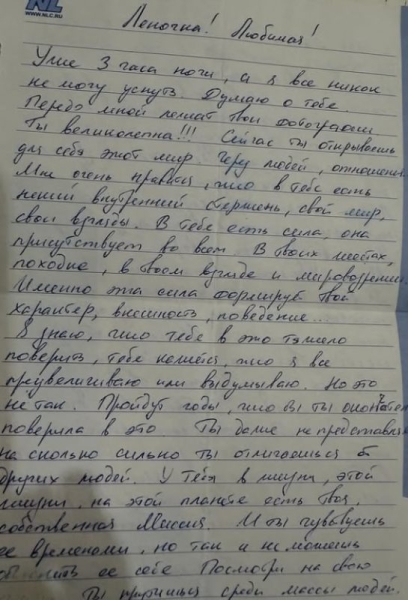 NL
WWW.NLC.RU
Леночка! Любимая!
Уже 3 часа ночи, а я все никак
не могу уснуть. Думаю о тебе
Передо мной лежат твои фотографии
Ты великолепна!!! Сейчас ты открываешь
для себя этот мир через людей, отношения.
Мне очень нравится, что в тебе есть
некий внутренний стержень, свой мир,
свои взгляды. В тебе есть сила, она
присутствует во всем. В твоих жестах,
походке, в твоем взгляде и мировоззрении.
Именно эта сила формирует твой
характер, внешность, поведение...
Я знаю, что тебе в это тяжело
поверить, тебе кажется, что я все
преувеличиваю или выдумываю. Но это
не так. Пройдут годы, что бы ты окончател
поверила в это Ты даже не представля
на сколько сильно ты отличаешься от
других людей. У тебя в жизни, этой
жизни, на этой планете есть твоя
собственная Миссия. И ты чувствуешь
ее временами, но так и не можешь
объяснить ее себе Посмотри на свою
Ты среди массы людей.